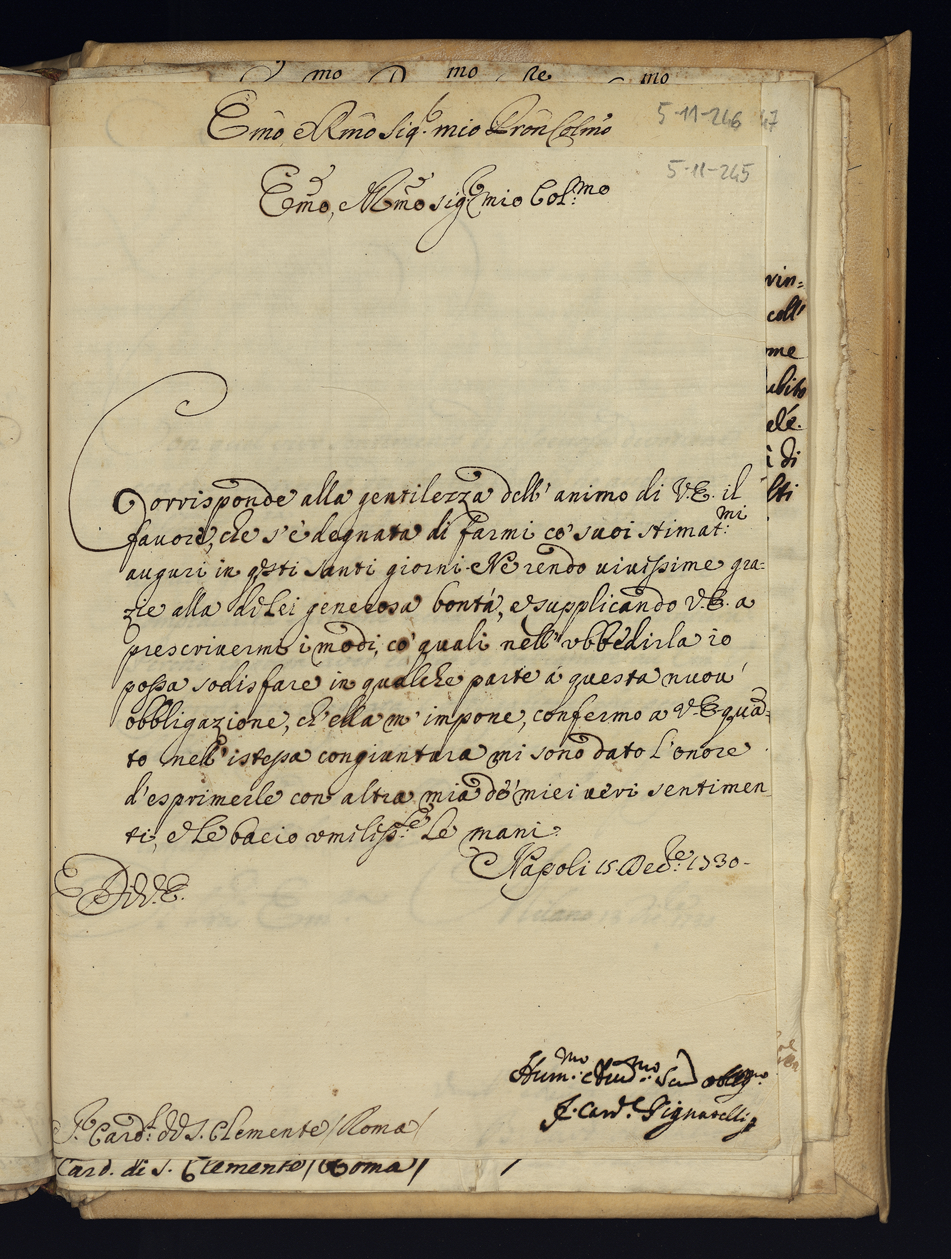 Em̃o, e Rm̃o Sig.r mio Pron Colm̃o
5-11-246 47
5-11-245
Em̃o, e Rm̃o sig.r mio Col.mo
vin=
coll'
me
abito
ele.
i di
lti
Corrisponde alla gentilezza dell' animo di V.E. il
favore, che s'è degnata di farmi co' suoi stimat.mi
auguri in q̃sti santi giorni. Ne rendo vivissime gra=
zie alla di Lei generosa bontà, e supplicando V.E. a
prescrivermi i modi, co' quali nell' ubbedirla io
possa sodisfare in qualche parte à questa nuova
obbligazione, ch'ella m' impone, confermo a V.E. quã=
to nell' istessa congiuntura mi sono dato l'onore
d'esprimerle con altra mia de' miei veri sentimen
ti, e Le bacio umiliss.te Le mani.
Napoli 15 Dec.re 1730.
Di V.E.
Hum.mo e Aud.mo Ser obblig.mo
F. Card.l Pignatelli
S.r Card.l di S. Clemente / Roma /
Card. di S. Clemente / Roma /